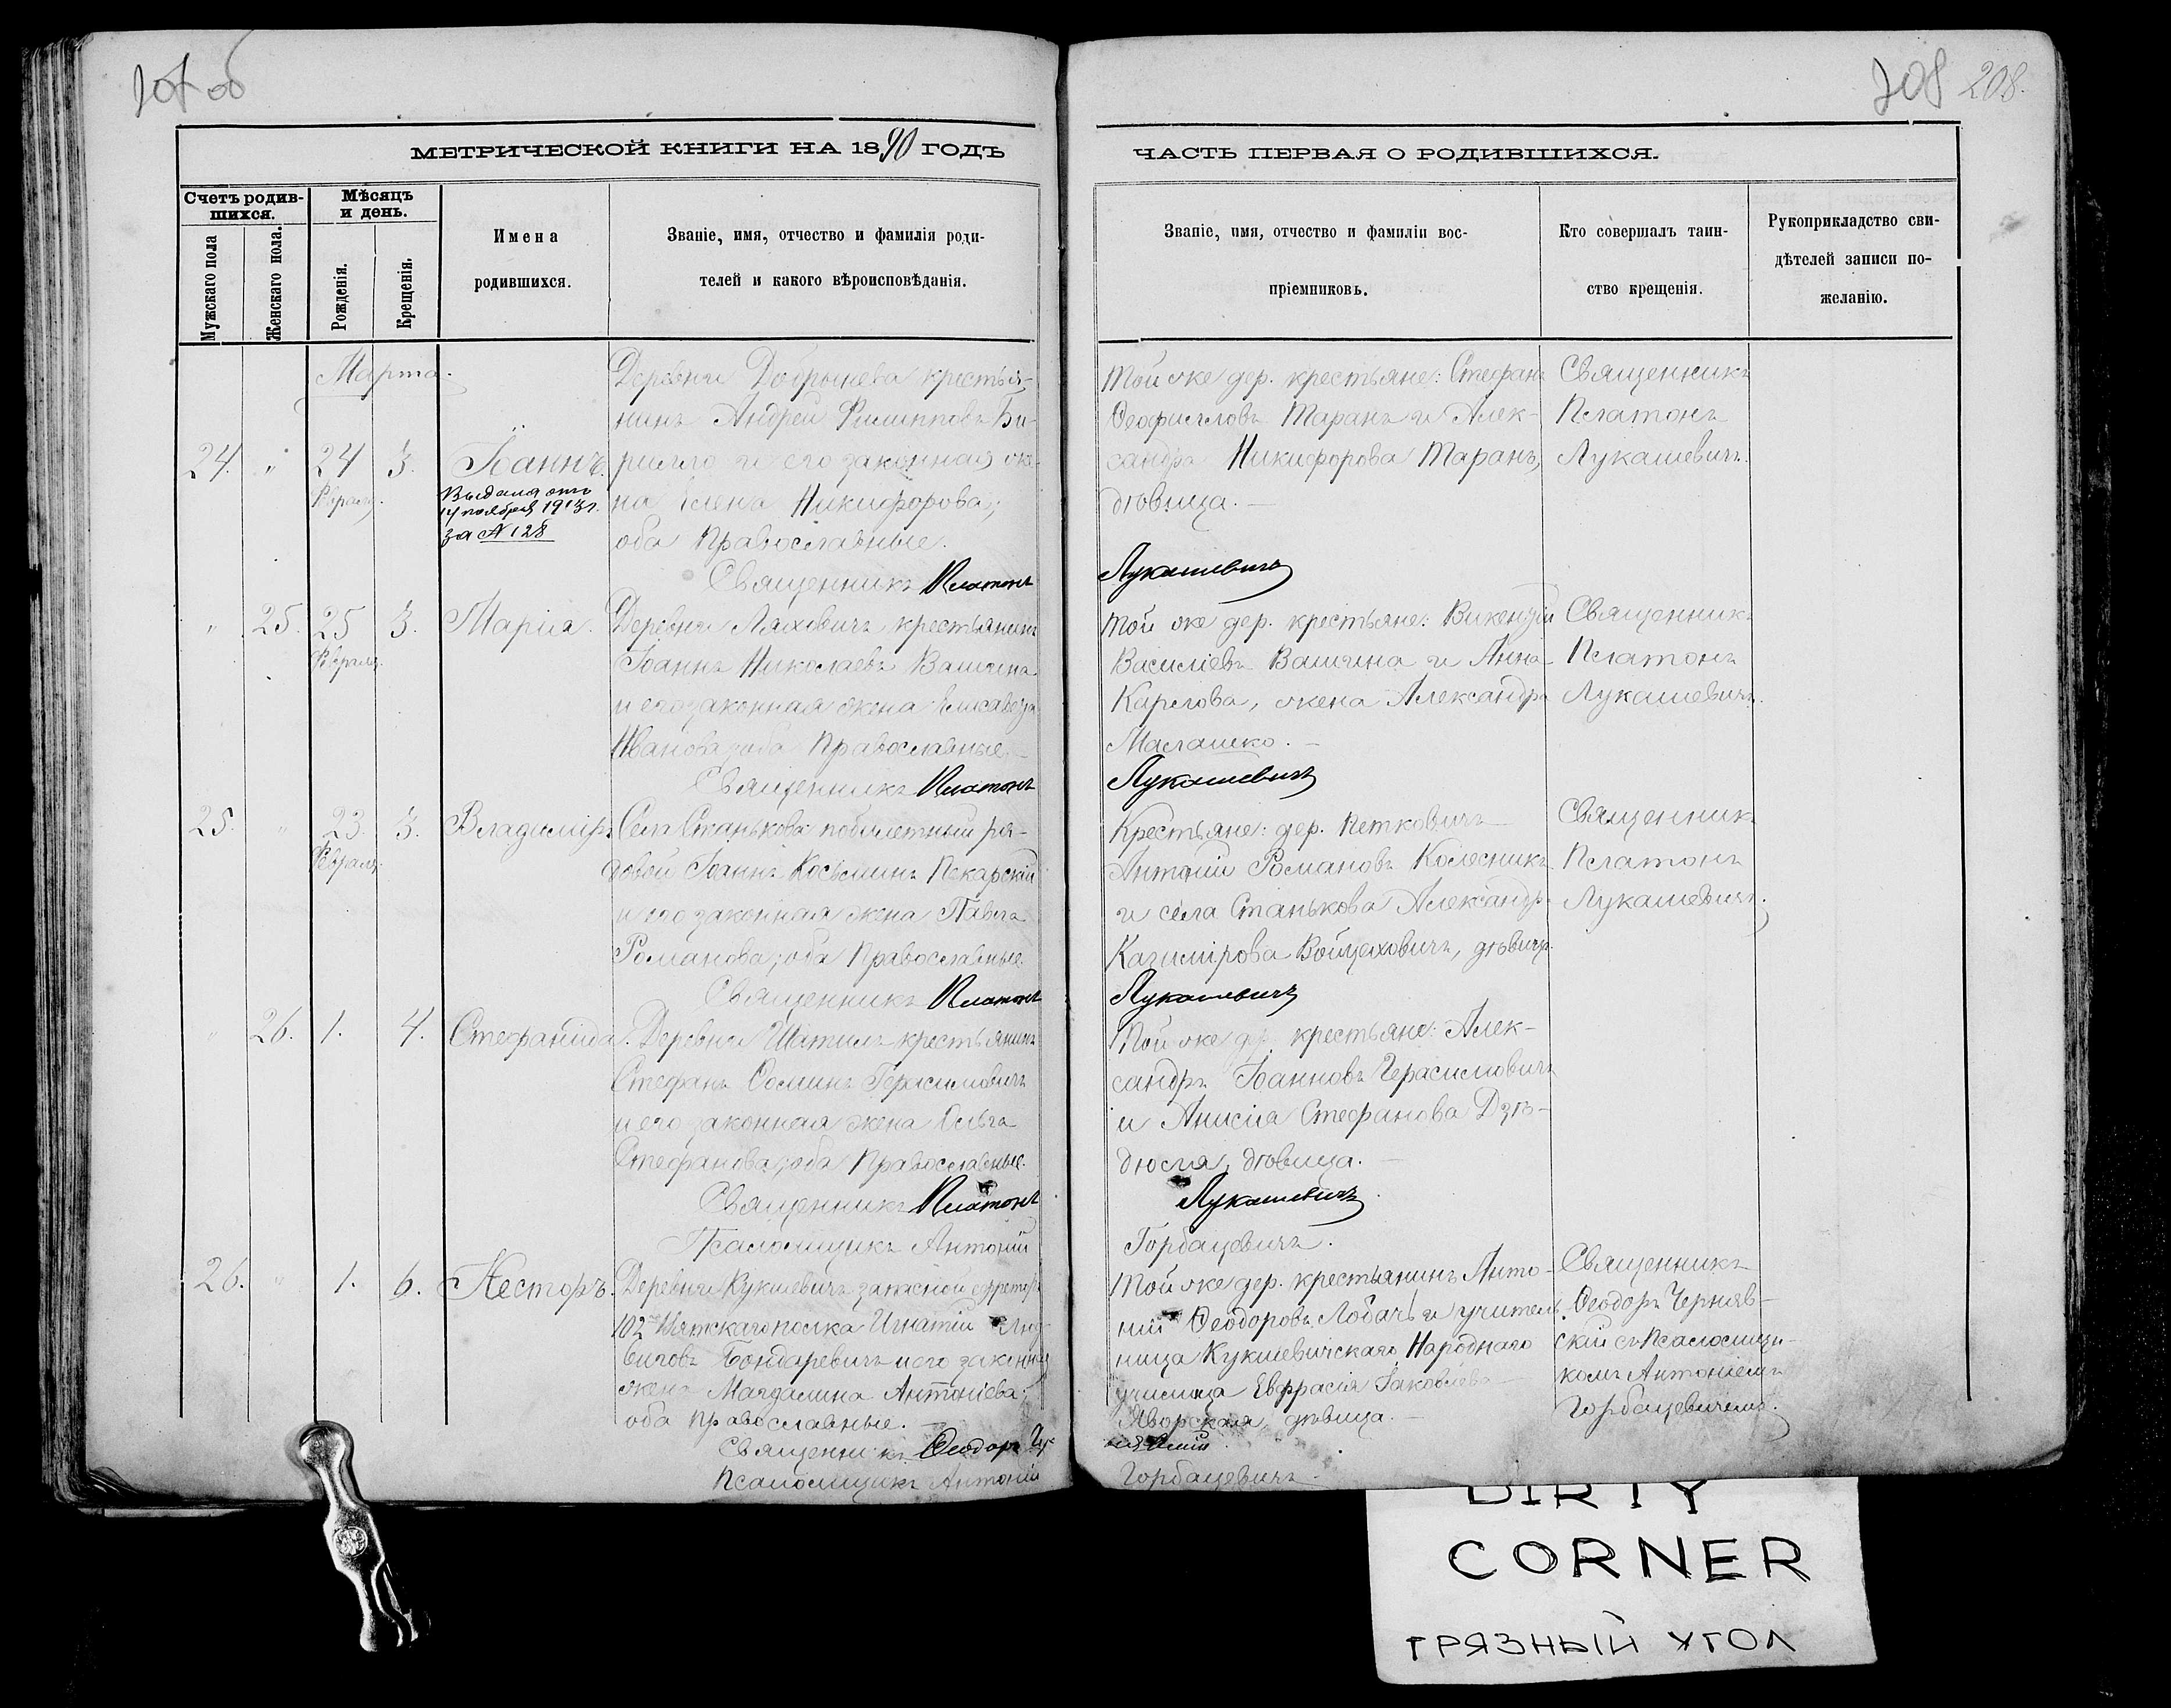 207 об
МЕТРИЧЕСКОЙ КНИГИ НА 1890 ГОДЪ
Счетъ родив-
шихся.
Мѣсяцъ
и день.
Мужскаго пола
Женскаго пола.
Рожденія.
Крещенія.
Имена
родившихся.
Званіе, имя, отчество и фамилія роди-
телей и какого вѣроисповѣданія.
Марта.
24. " 24 3. Іоаннъ.
Февраля.
Выдана отъ
14 ноября 1913 г.
за № 128
Деревни Добрынева крестья-
нинъ Андрей Филипповъ Би-
рилло и его законная же-
на Елена Никифорова;
оба Православные.
Священникъ Платонъ
" 25. 25 3. Марія.
Февраля.
Деревни Ляховичъ крестьянинъ
Іоаннъ Николаевъ Вашина
и его законная жена Елисавета
Иванова; оба Православные.
Священникъ Платонъ
25. " 23. 3. Владиміръ
Февраля.
Села Станькова побилетный ря-
довой Іоаннъ Косьминъ Пекарскій
и его законная жена Павла
Романова; оба Православные.
Священникъ Платонъ
" 26. 1. 4. Стефанида.
Деревни Шатилъ крестьянинъ
Стефанъ Ѳоминъ Герасимовичъ
и его законная жена Ольга
Стефанова; оба Православные.
Священникъ Платонъ
Псаломщикъ Антоній
26. " 1. 6. Несторъ.
Деревни Кукшевичъ запасной ефрейторъ
102 Вятскаго полка Игнатій Люд-
виговъ Бондаревичъ и его законная
жена Магдалина Антоніева;
оба православные.
Священникъ Ѳеодоръ Чер-
Псаломщикъ Антоній
208 208.
ЧАСТЬ ПЕРВАЯ О РОДИВШИХСЯ.
Званіе, имя, отчество и фамиліи вос-
пріемниковъ.
Кто совершалъ таин-
ство крещенія.
Рукоприкладство сви-
дѣтелей записи по-
желанію.
Той же дер. крестьяне: Стефанъ
Ѳеофиловъ Таранъ и Алек-
сандра Никифорова Таранъ,
дѣвица.
Лукашевичъ
Священникъ
Платонъ
Лукашевичъ.
Той же дер. крестьяне: Викентій
Василіевъ Вашина и Анна
Карпова, жена Александра
Малашко.
Лукашевичъ
Священникъ
Платонъ
Лукашевичъ.
Крестьяне: дер. Петковичъ
Антоній Романовъ Колесникъ
и села Станькова Александра
Казимірова Войцеховичъ, дѣвица.
Лукашевичъ
Священникъ
Платонъ
Лукашевичъ.
Той же дер. крестьяне: Алек-
сандръ Іоанновъ Герасимовичъ
и Анисія Стефанова Дзѣ-
дюля, дѣвица.
Лукашевичъ
Горбацевичъ.
Той же дер. крестьянинъ Анто-
ній Ѳеодоровъ Лобачъ и учитель
ница Кукшевичскаго Народнаго
училища Евфрасія Іаковлева
Яворская, дѣвица.
нявскій
Горбацевичъ.
Священникъ
Ѳеодоръ Черняв-
скій съ Псаломщи-
комъ Антоніемъ
Горбацевичемъ.
DIRTY
CORNER
ГРЯЗНЫЙ УГОЛ